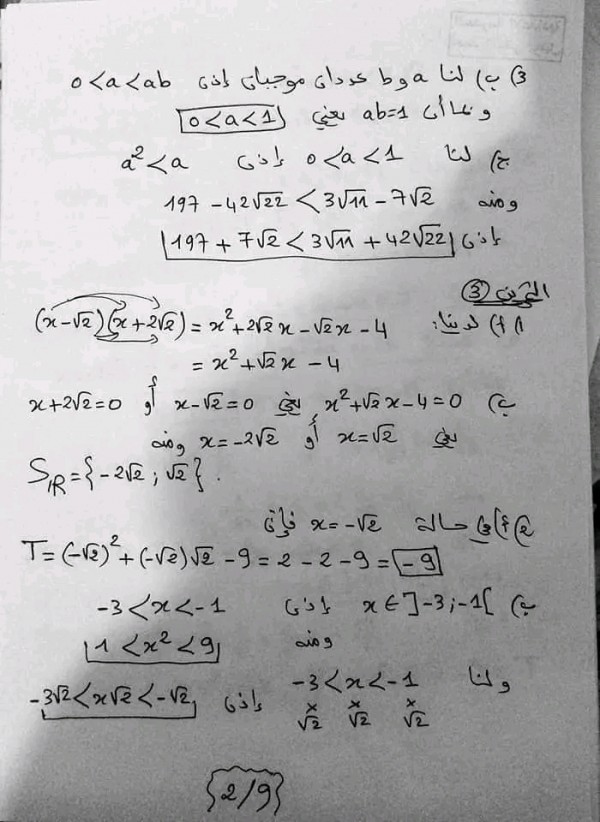 3) ب) لنا a و b عددان موجبان إذن 0<a<ab
وبما أن ab=1 يعني 0<a<1
ج) لنا 0<a<1 إذن a²<a
ومنه 197-42√22<3√11-7√2
إذن 197+7√2<3√11+42√22
التمرين (3)
1) أ) لدينا: (x-√2)(x+2√2)=x²+2√2x-√2x-4
=x²+√2x-4
ب) x²+√2x-4=0 يعني x-√2=0 أو x+2√2=0
يعني x=√2 أو x=-2√2 ومنه
S_IR={-2√2;√2}.
2) أ) في حالة x=-√2 فإن
T=(-√2)²+(-√2)√2-9=2-2-9=-9
ب) x∈]-3;-1[ إذن -3<x<-1
ومنه 1<x²<9
ولنا -3<x<-1 إذن -3√2<x√2<-√2
× × ×
√2 √2 √2
{2/9}